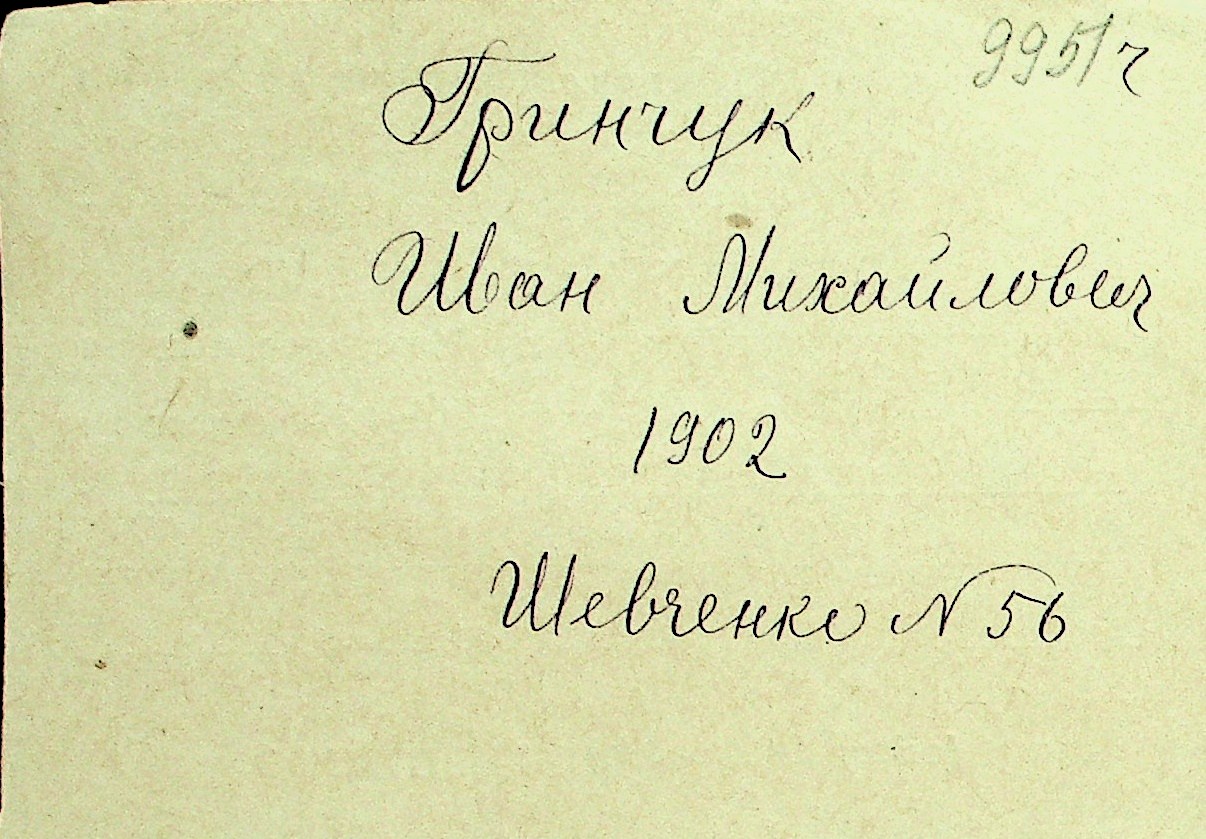 9951 ч
Гринчук
Иван Михайлович
1902
Шевченко N 56